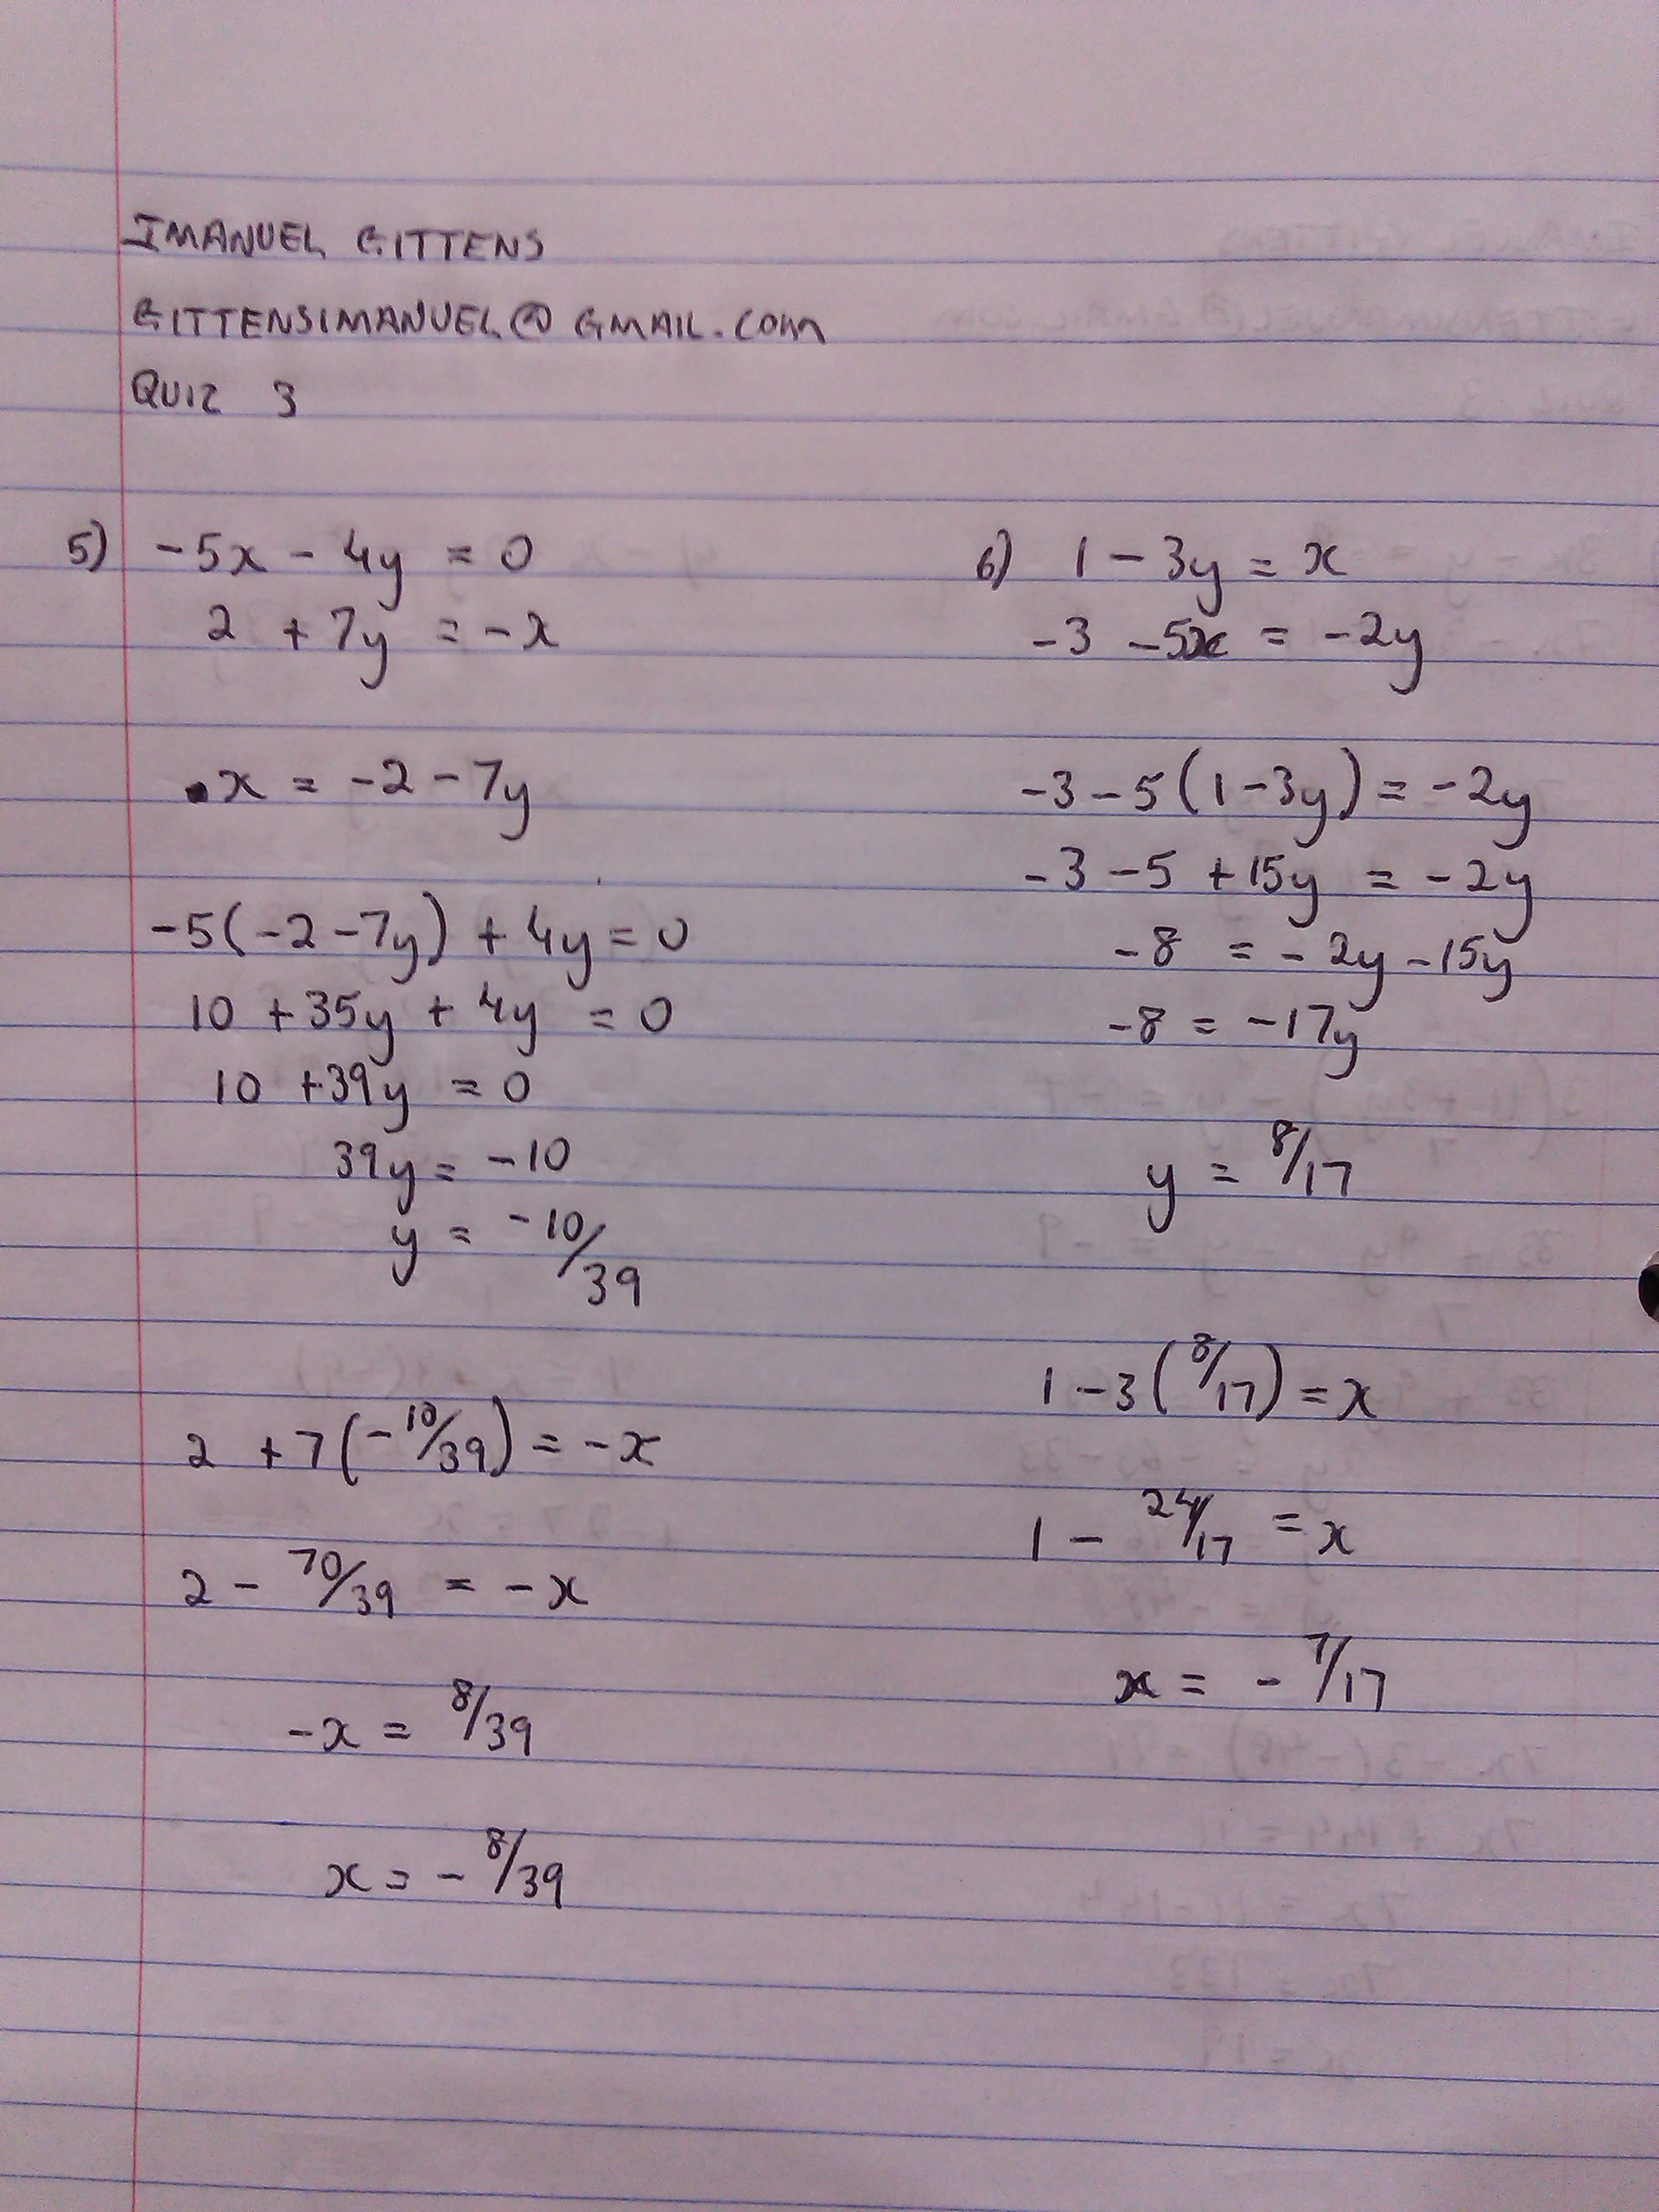 IMANUEL GITTENS
GITTENSIMANUEL@GMAIL.COM
QUIZ 3
5) -5x - 4y = 0
2 + 7y = -x
x = -2 - 7y
-5(-2 - 7y) + 4y = 0
10 + 35y + 4y = 0
10 + 39y = 0
39y = -10
y = -10/39
2 + 7(-10/39) = -x
2 - 70/39 = -x
-x = 8/39
x = - 8/39
6) 1 - 3y = x
-3 - 5x = -2y
-3 - 5(1 - 3y) = -2y
-3 - 5 + 15y = -2y
-8 = -2y - 15y
-8 = -17y
y = 8/17
1 - 3(8/17) = x
1 - 24/17 = x
x = - 7/17